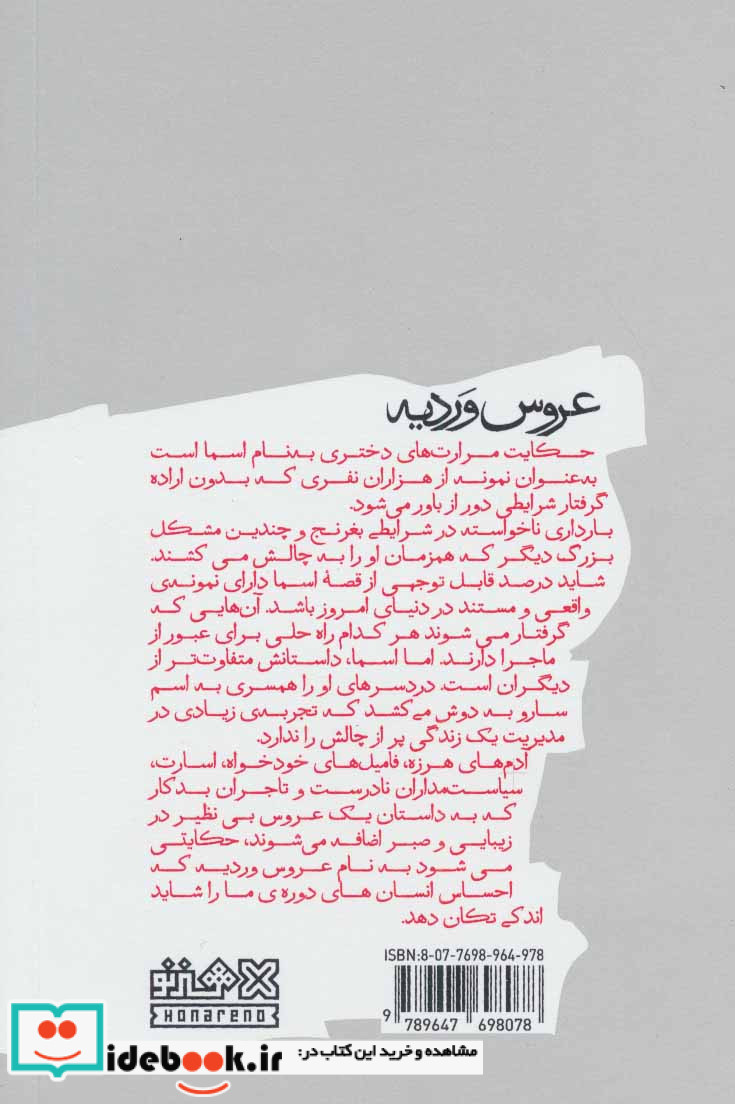 عروس وَردیه
حکایت مرارت‌های دختری به‌نام اسما است
به‌عنوان نمونه از هزاران نفری که بدون اراده
گرفتار شرایطی دور از باور می‌شود.
بارداری ناخواسته در شرایطی بغرنج و چندین مشکل
بزرگ دیگر که همزمان او را به چالش می کشند.
شاید درصد قابل توجهی از قصهٔ اسما دارای نمونه‌ی
واقعی و مستند در دنیای امروز باشد. آن‌هایی که
گرفتار می شوند هر کدام راه حلی برای عبور از
ماجرا دارند. اما اسما، داستانش متفاوت‌تر از
دیگران است. دردسرهای او را همسری به اسم
سارو به دوش می‌کشد که تجربه‌ی زیادی در
مدیریت یک زندگی پر از چالش را ندارد.
آدم‌های هرزه، فامیل‌های خودخواه، اسارت،
سیاست‌مداران نادرست و تاجران بدکار
که به داستان یک عروس بی نظیر در
زیبایی و صبر اضافه می‌شوند، حکایتی
می شود به نام عروس وردیه که
احساس انسان های دوره ی ما را شاید
اندکی تکان دهد.
ISBN:8-07-7698-964-978
9 789647 698078
هنر نو
HONARENO
مشاهده و خرید این کتاب در:
idebook.ir